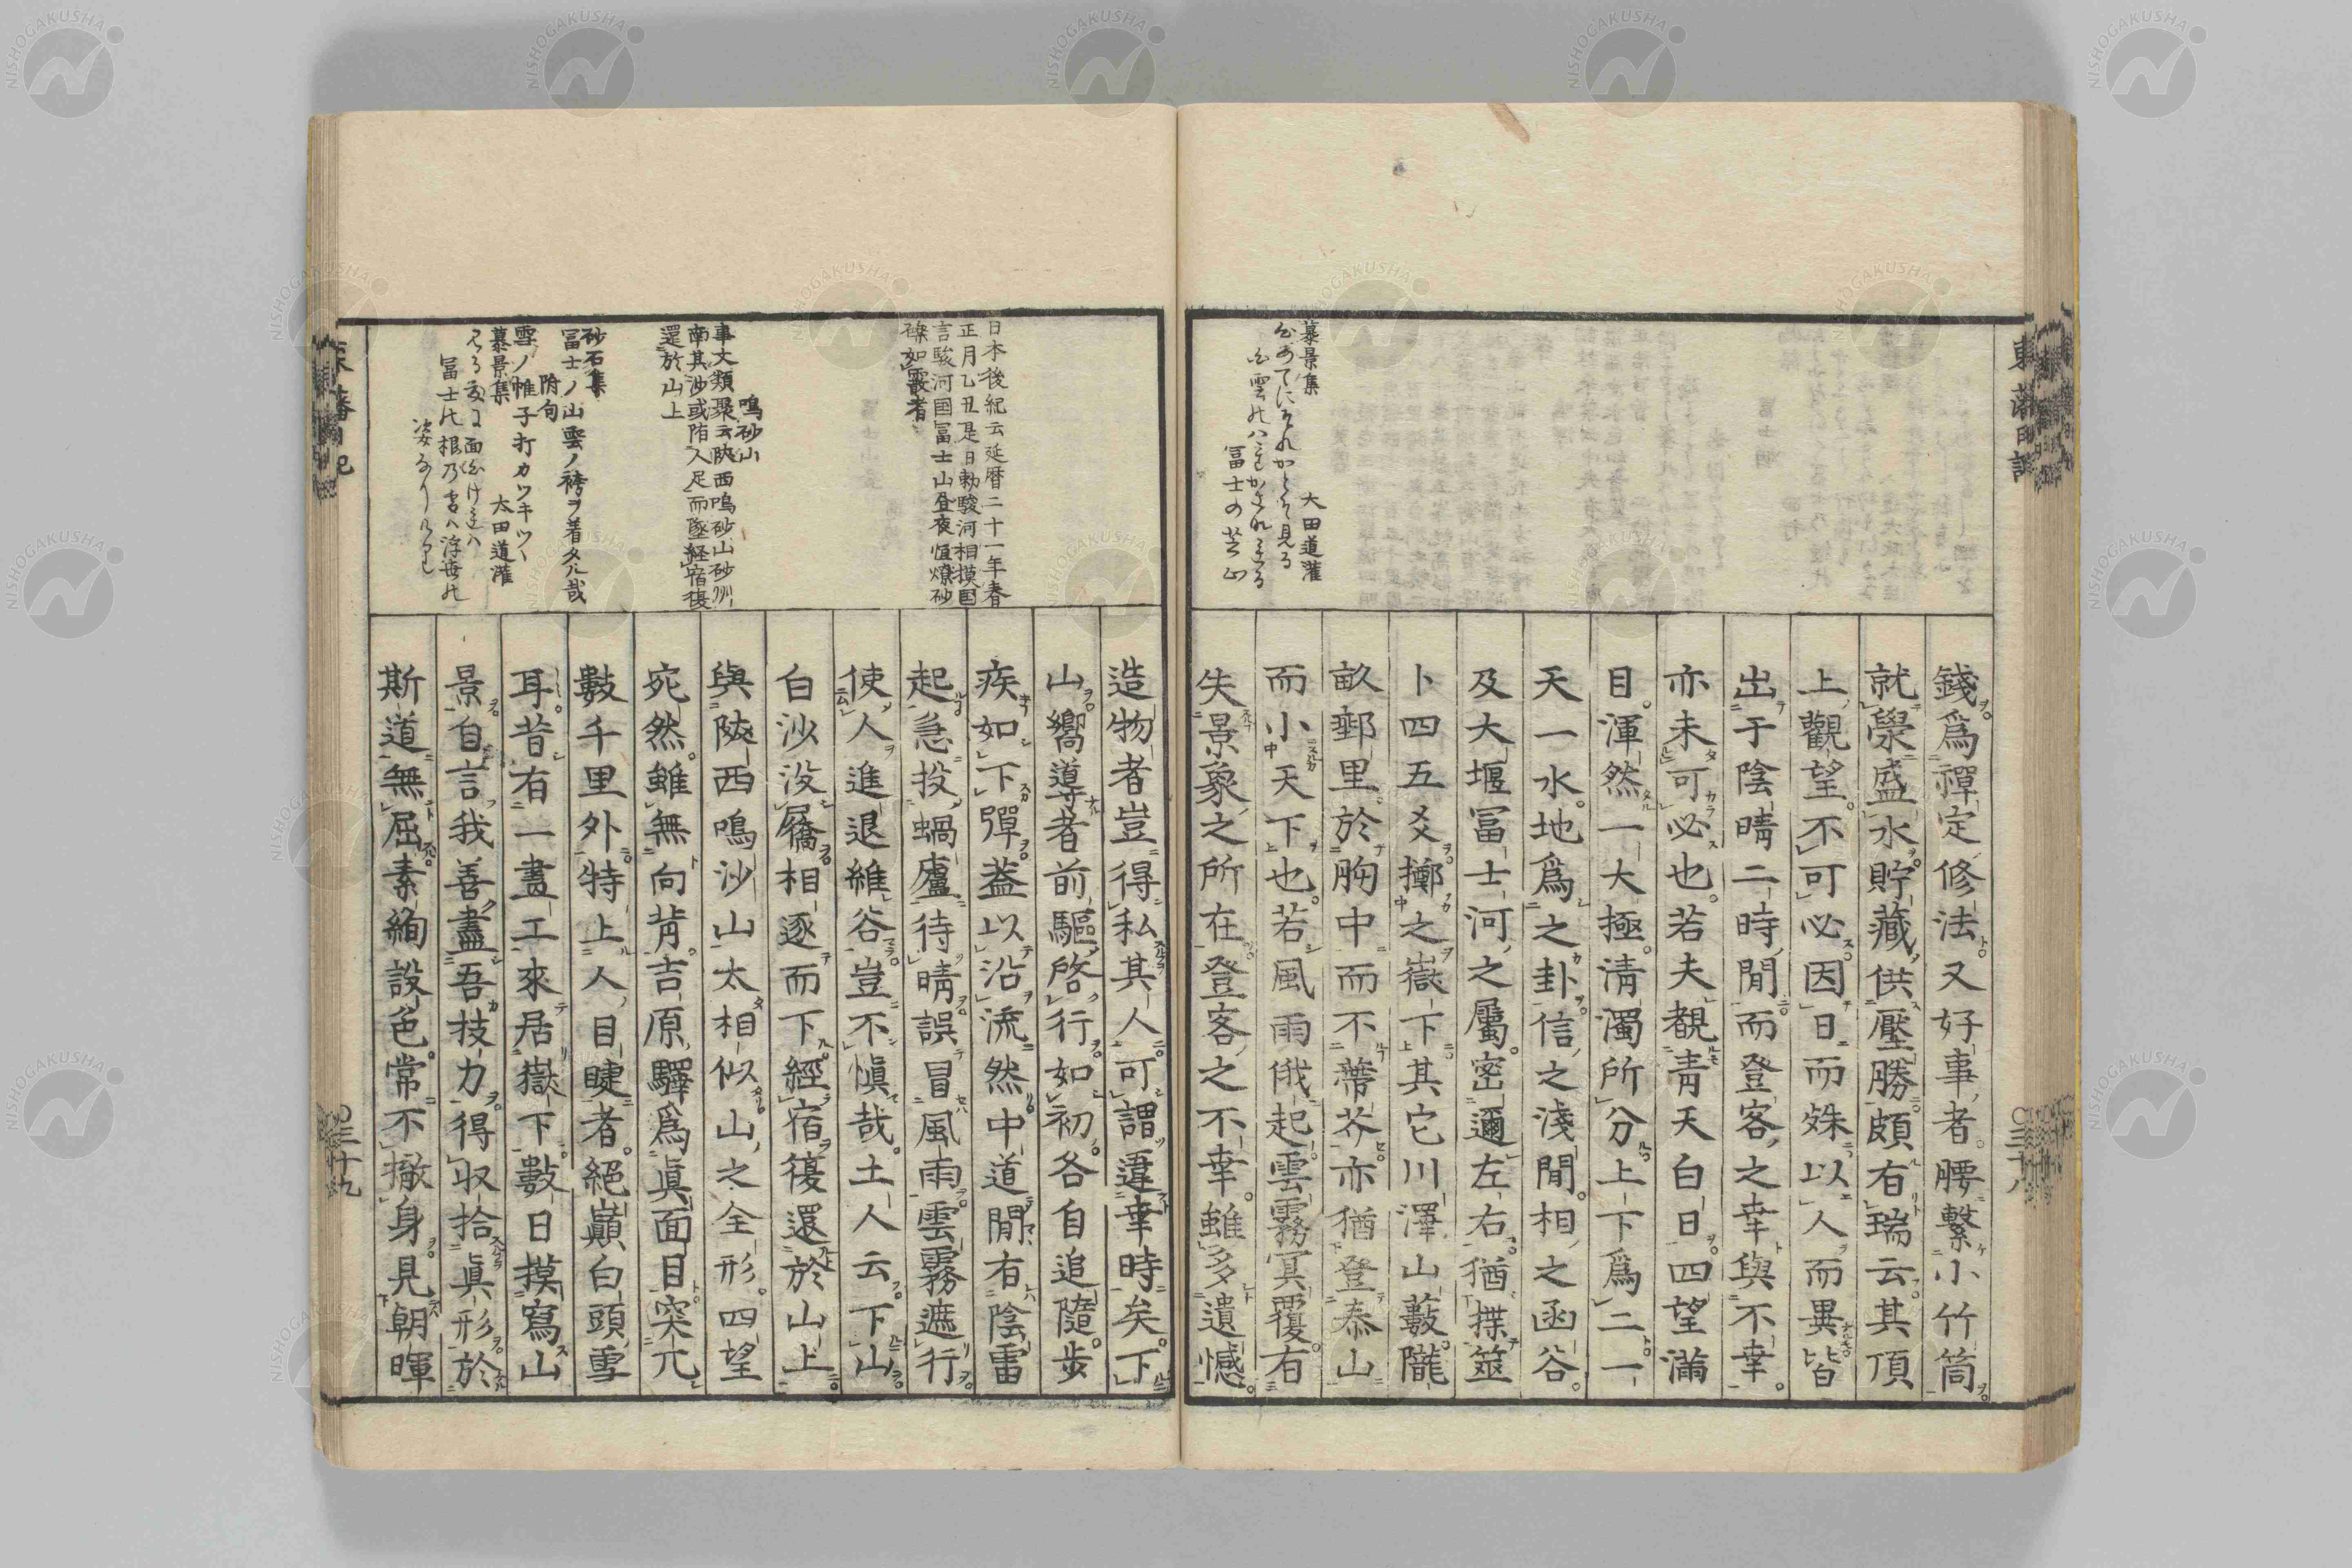 慕景集
大田道灌
冨士の芝山
錢爲禪定修法又好事者腰繫小竹筒
就學盛水貯藏供壓勝頗有瑞云其頂
上觀望不可必因日而殊以人而異皆
出于陰晴二時閒而登客之幸與不幸
亦未可必也若夫覩靑天白日四望滿
目渾然一大極淸濁所分上下爲二一
天一水地爲之卦信之淺閒相之函谷
及大堰冨士河之屬密邇左右猶揲筮
卜四五爻擲之嶽下其它川澤山藪隴
畝郵里於胸中而不蔕芥亦猶登泰山
而小天下也若風雨俄起雲霧冥覆有
失景象之所在登客之不幸雖多遺憾
日本後紀云延暦二十一年春
正月乙丑是日勅駿河相摸国
言駿河国冨士山昼夜恒燎砂
礫如霰者
鳴砂山
事文類聚云陜西鳴砂山砂州
南其沙或陷人足而墜経宿復
還於山上
砂石集
冨士ノ山雲ノ袴ヲ着タル哉
附句
雪ノ帷子打カツキツヽ
慕景集
太田道灌
造物者豈得私其人可謂遅幸時矣下
山嚮導者前驅啓行如初各自追隨步
疾如下彈蓋以沿流然中道閒有陰雷
起急投蝸廬待晴誤冒風雨雲霧遮行
使人進退維谷豈不愼哉土人云下山
白沙没屩相逐而下經宿復還於山上
與陝西鳴沙山太相似山之全形四望
宛然雖無向背吉原驛爲眞面目突兀
數千里外特上人目睫者絕巓白頭雪
耳昔有一畫工來居嶽下數日摸寫山
景自言我善畫吾技力得収拾眞形於
斯道無屈素絢設色常不撤身見朝暉